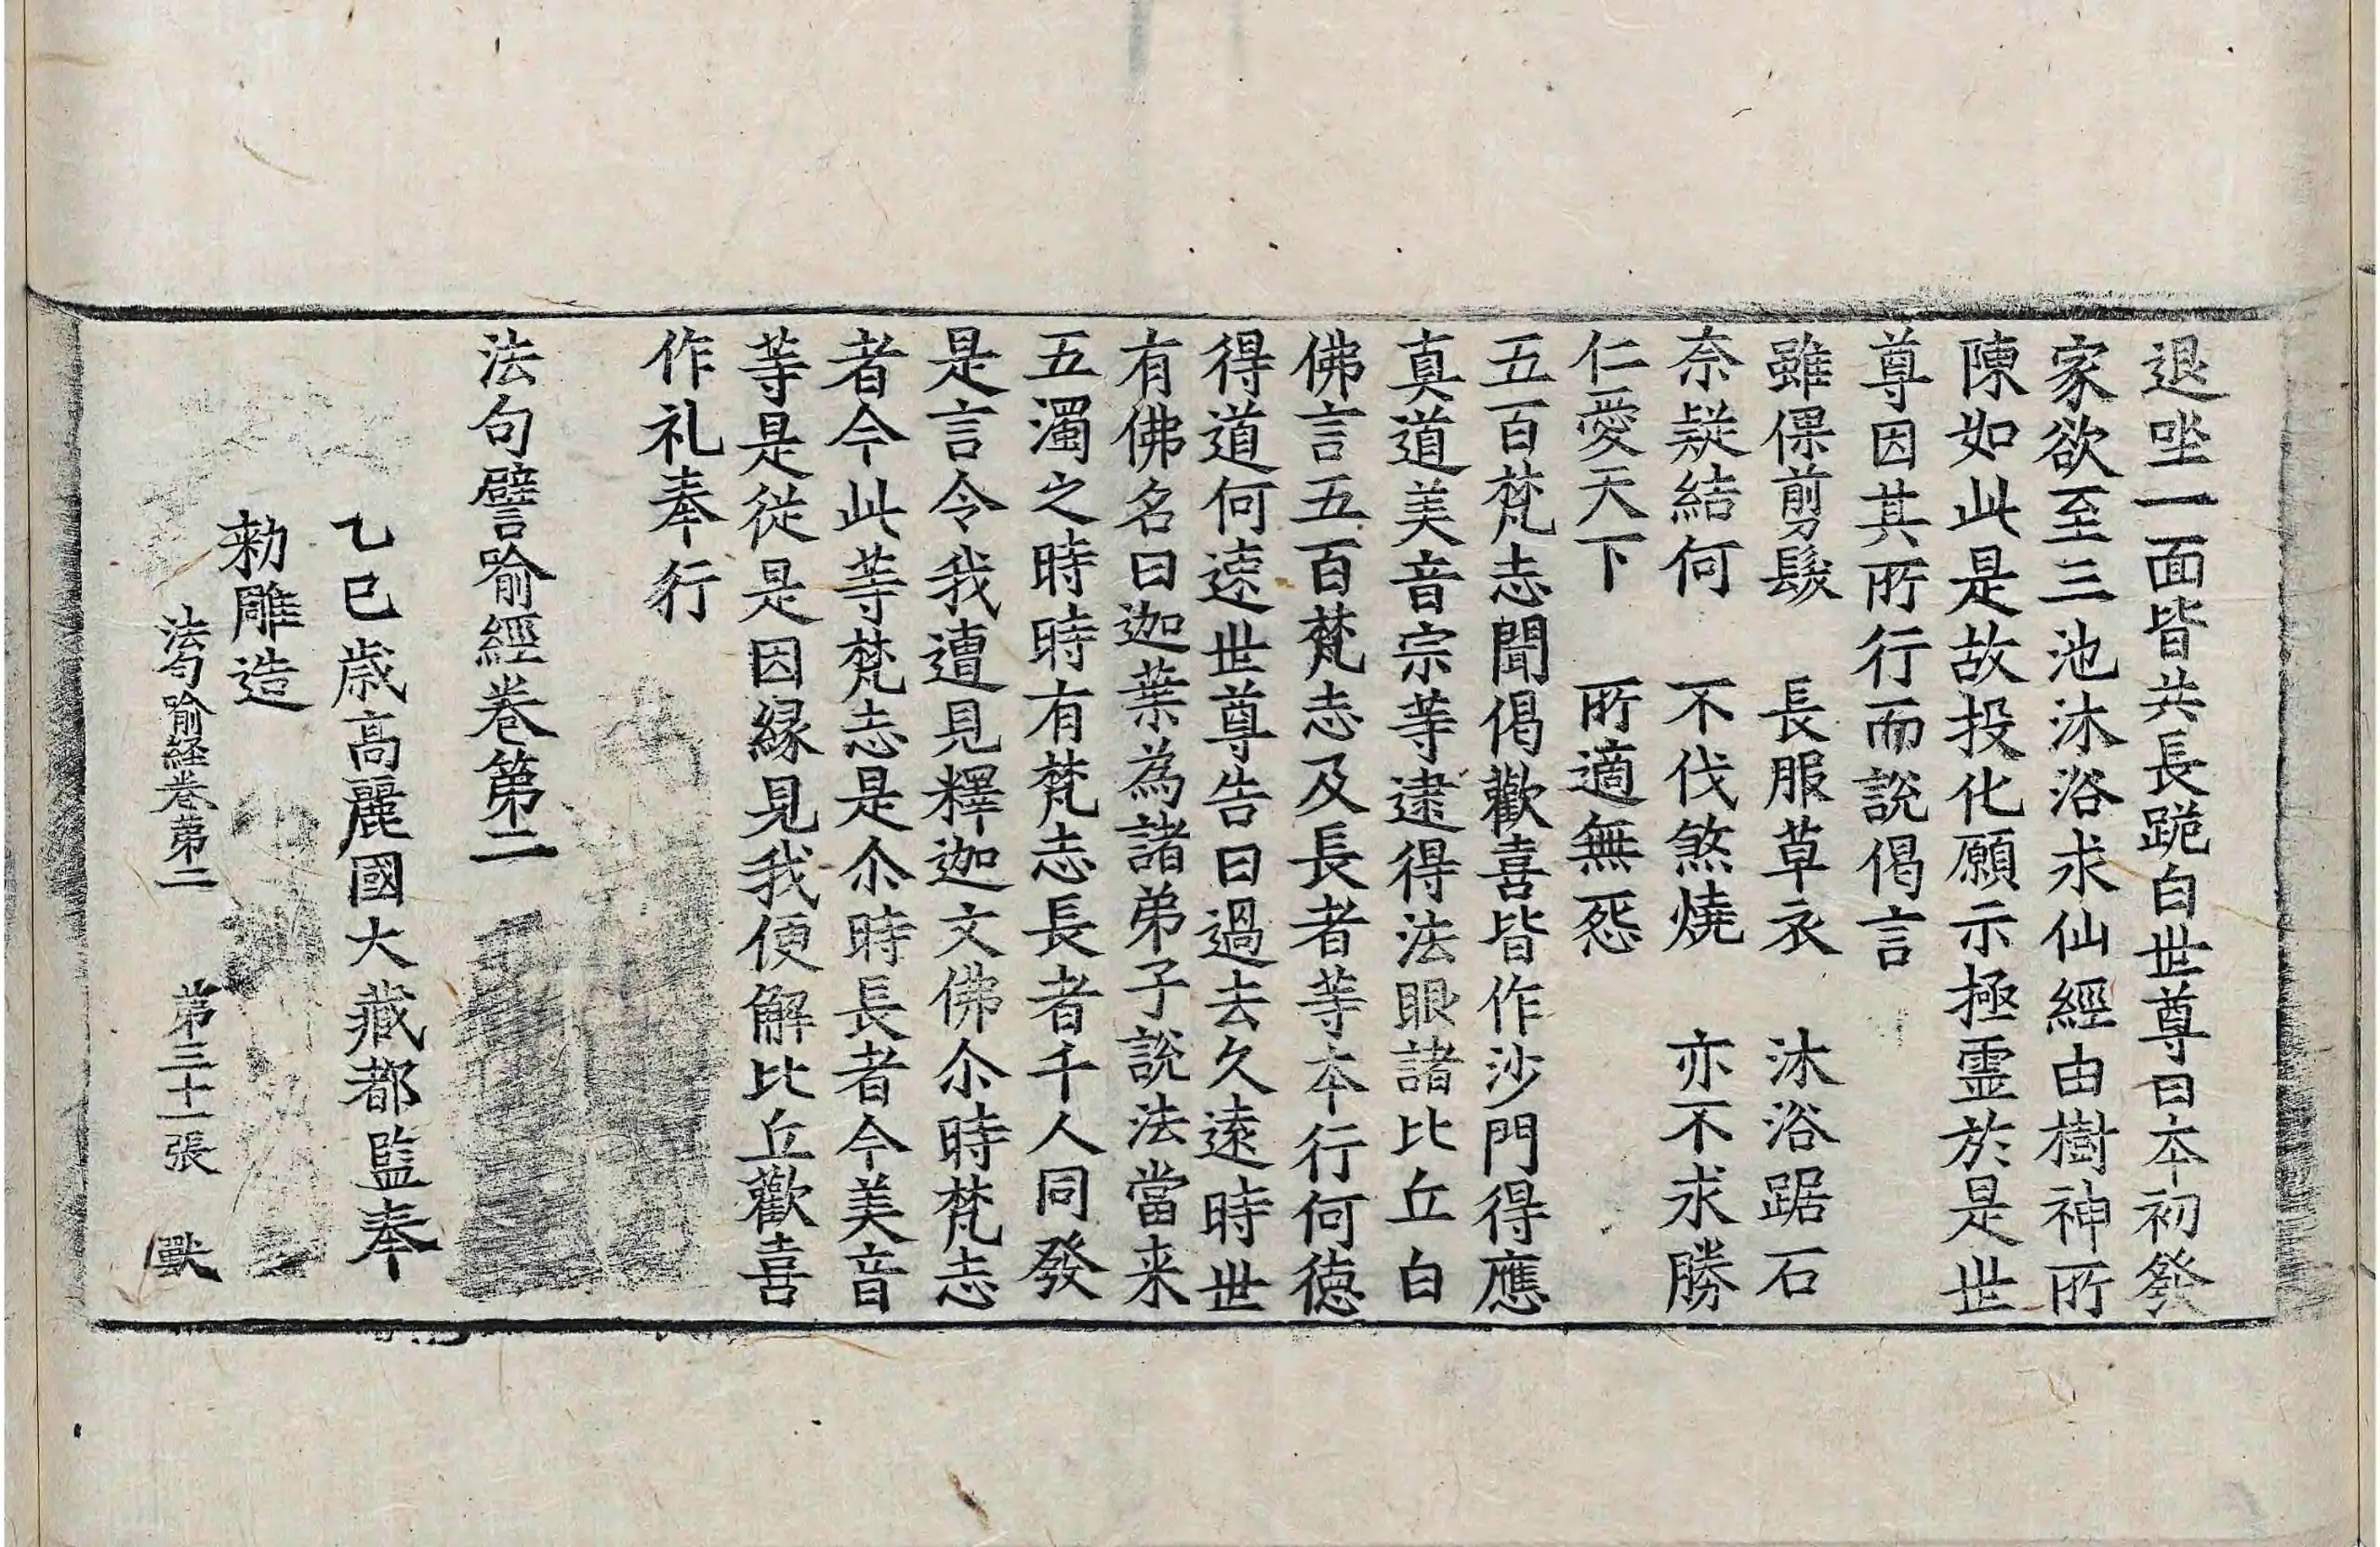 退坐一面皆共長跪白世尊曰本初發
家欲至三池沐浴求仙經由樹神所
陳如此是故投化願示極霊於是世
尊因其所行而說偈言
雖倮剪髮　長服草衣　沐浴踞石
奈疑結何　不伐煞燒　亦不求勝
仁愛天下　所適無怨
五百梵志聞偈歡喜皆作沙門得應
真道美音宗等逮得法眼諸比丘白
佛言五百梵志及長者等本行何徳
得道何速世尊告曰過去久遠時世
有佛名曰迦葉為諸弟子說法當来
五濁之時時有梵志長者千人同發
是言令我遭見釋迦文佛尒時梵志
者今此等梵志是尒時長者今美音
等是從是因緣見我便解比丘歡喜
作礼奉行
法句譬喻經卷第二
乙巳歳高麗國大藏都監奉
勑雕造
法句喻経卷第二　第三十一張　獸